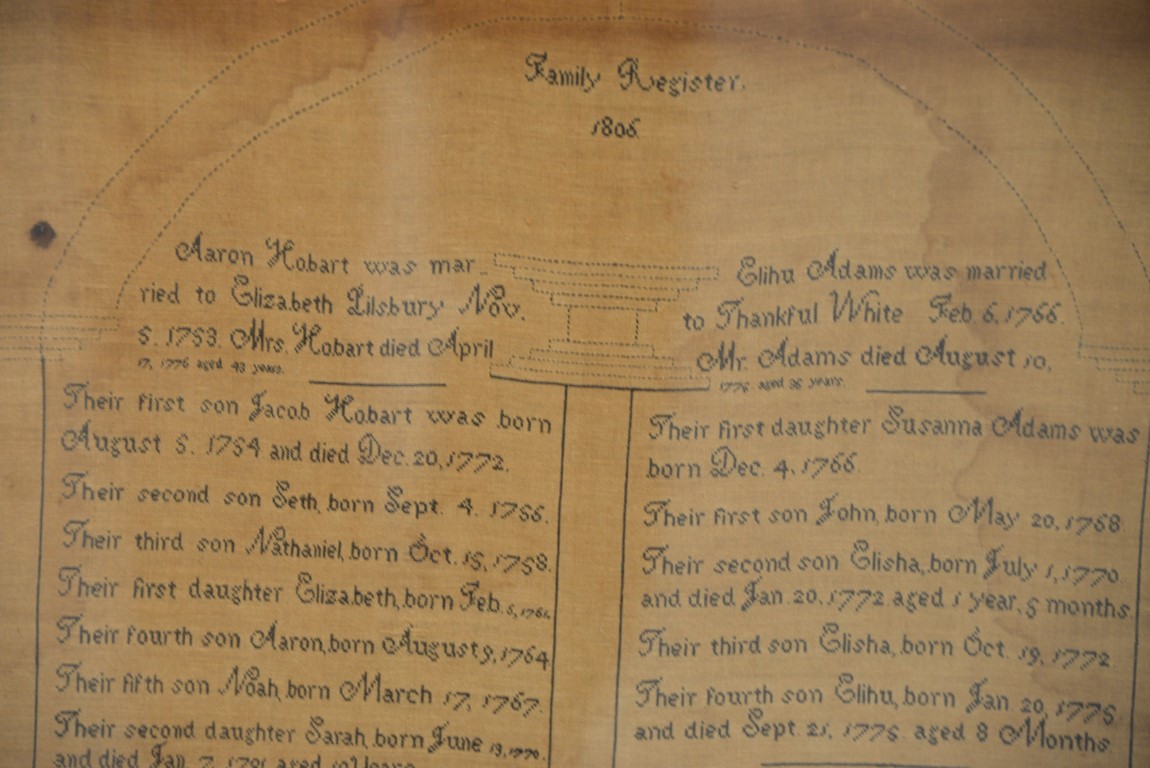 Family Register.
1806.
Aaron Hobart was mar_
ried to Elizabeth Pilsbury Nov.
5. 1753. Mrs. Hobart died April
17, 1776 aged 43 years.
Their first son Jacob Hobart was born
August 5. 1754 and died Dec. 20, 1772.
Their second son Seth, born Sept. 4. 1756.
Their third son Nathaniel, born Oct. 15, 1758.
Their first daughter Elizabeth, born Feb.
Their fourth son Aaron, born August 9, 1764
Their fifth son Noah, born March 17, 1767.
Their second daughter Sarah, born June 13, 1770.
and died Jan 7, aged
Elihu Adams was married
to Thankful White Feb. 6, 1766.
Mr. Adams died August 10,
1775 aged 35 years.
Their first daughter Susanna Adams was
born Dec. 4, 1766.
Their first son John, born May 20, 1768
Their second son Elisha, born July 1, 1770
and died Jan. 20, 1772 aged 1 year, 5 months.
Their third son Elisha, born Oct. 19, 1772
Their fourth son Elihu, born Jan 20, 1775.
and died Sept. 21, 1775 aged 8 Months